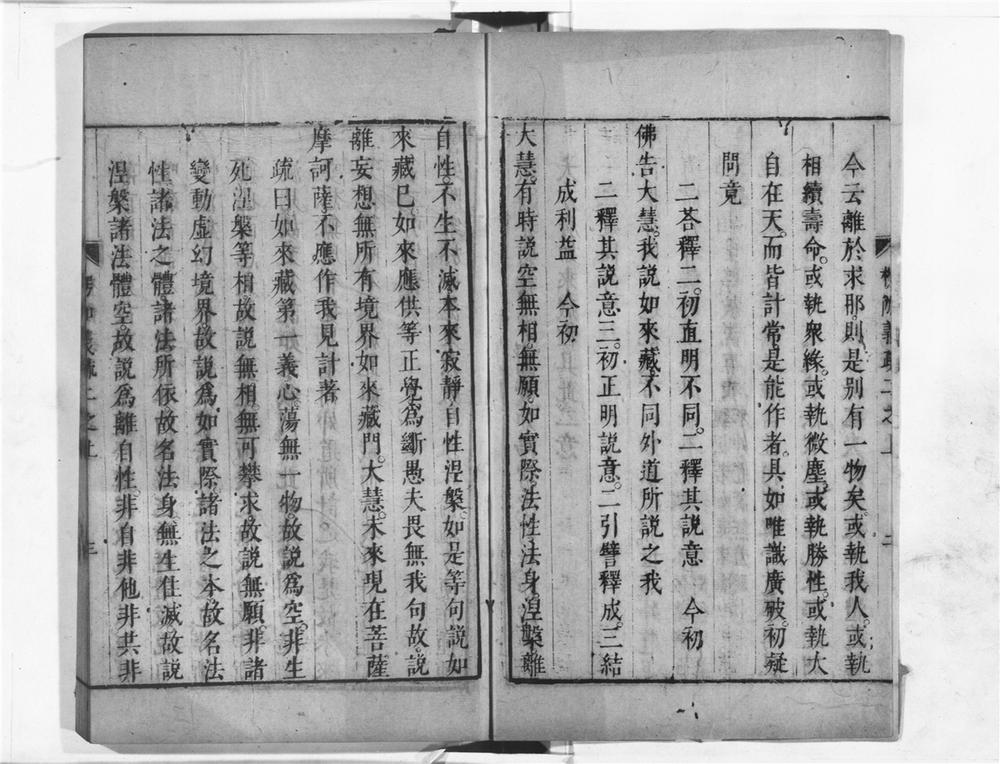 今云離於求那。則是別有一物矣。或執我人。或執
相續壽命。或執眾緣。或執微塵。或執勝性。或執大
自在天。而皆計常是能作者。具如唯識廣破。初疑
問竟
二荅釋二。初直明不同。二釋其說意 今初
佛告大慧。我說如來藏。不同外道所說之我
二釋其說意三。初正明說意。二引譬釋成。三結
成利益 今初
大慧。有時說空無相。無願。如實際法性法身。涅槃離
自性。不生不滅本來寂靜自性涅槃。如是等句說如
來藏已如來應供等正覺為斷愚夫畏無我句故。說
離妄想無所有境界如來藏門。大慧。未來現在菩薩
摩訶薩。不應作我見計著
疏曰如來藏第一義心蕩無一物。故說為空。非生
死涅槃等相故說無相。無可攀求。故說無願。非諸
變動虛幻境界故說為如實際。諸法之本。故名法
性諸法之體諸法所依故名法身無生住滅故說
涅槃諸法體空。故說為離自性非自非他非共非
楞伽義疏二之上 三